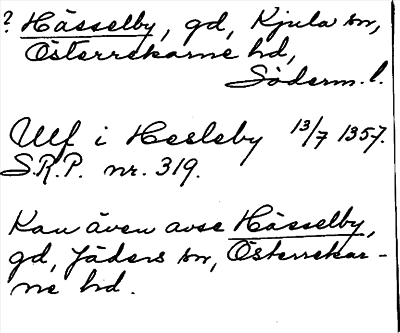 ? Hässelby, gd, Kjula sn,
Österrekarne hd,
Söderm. l.
Ulf i Hesleby 13/7 1357.
S.R.P. nr. 319.
Kan även avse Hässelby,
gd, Jäders sn, Österrekar-
ne hd.